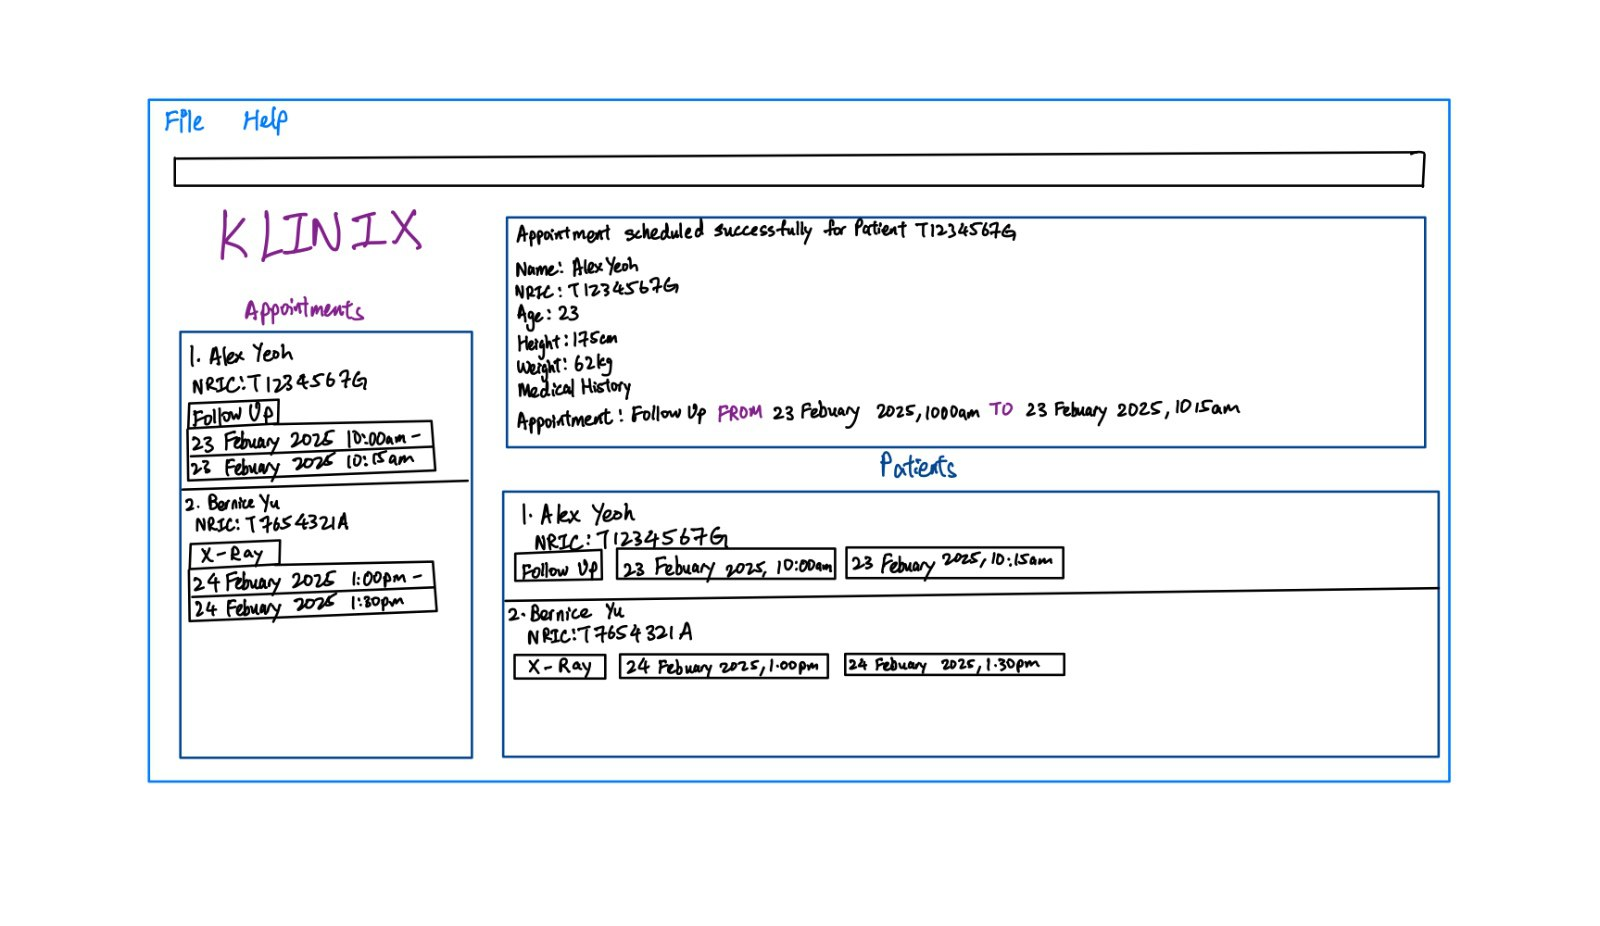 File Help
KLINIX
Appointments
1. Alex Yeoh
NRIC: T1234567G
Follow Up
23 Febuary 2025 10:00am -
23 Febuary 2025 10:15am
2. Bernice Yu
NRIC: T7654321A
X-Ray
24 Febuary 2025 1:00pm -
24 Febuary 2025 1:30pm
Appointment scheduled successfully for Patient T1234567G
Name: Alex Yeoh
NRIC: T1234567G
Age: 23
Height: 175cm
Weight: 62kg
Medical History
Appointment: Follow Up FROM 23 Febuary 2025, 1000am TO 23 Febuary 2025, 1015am
Patients
1. Alex Yeoh
NRIC: T1234567G
Follow Up 23 Febuary 2025, 10:00am 23 Febuary 2025, 10:15am
2. Bernice Yu
NRIC: T7654321A
X-Ray 24 Febuary 2025, 1.00pm 24 Febuary 2025, 1.30pm